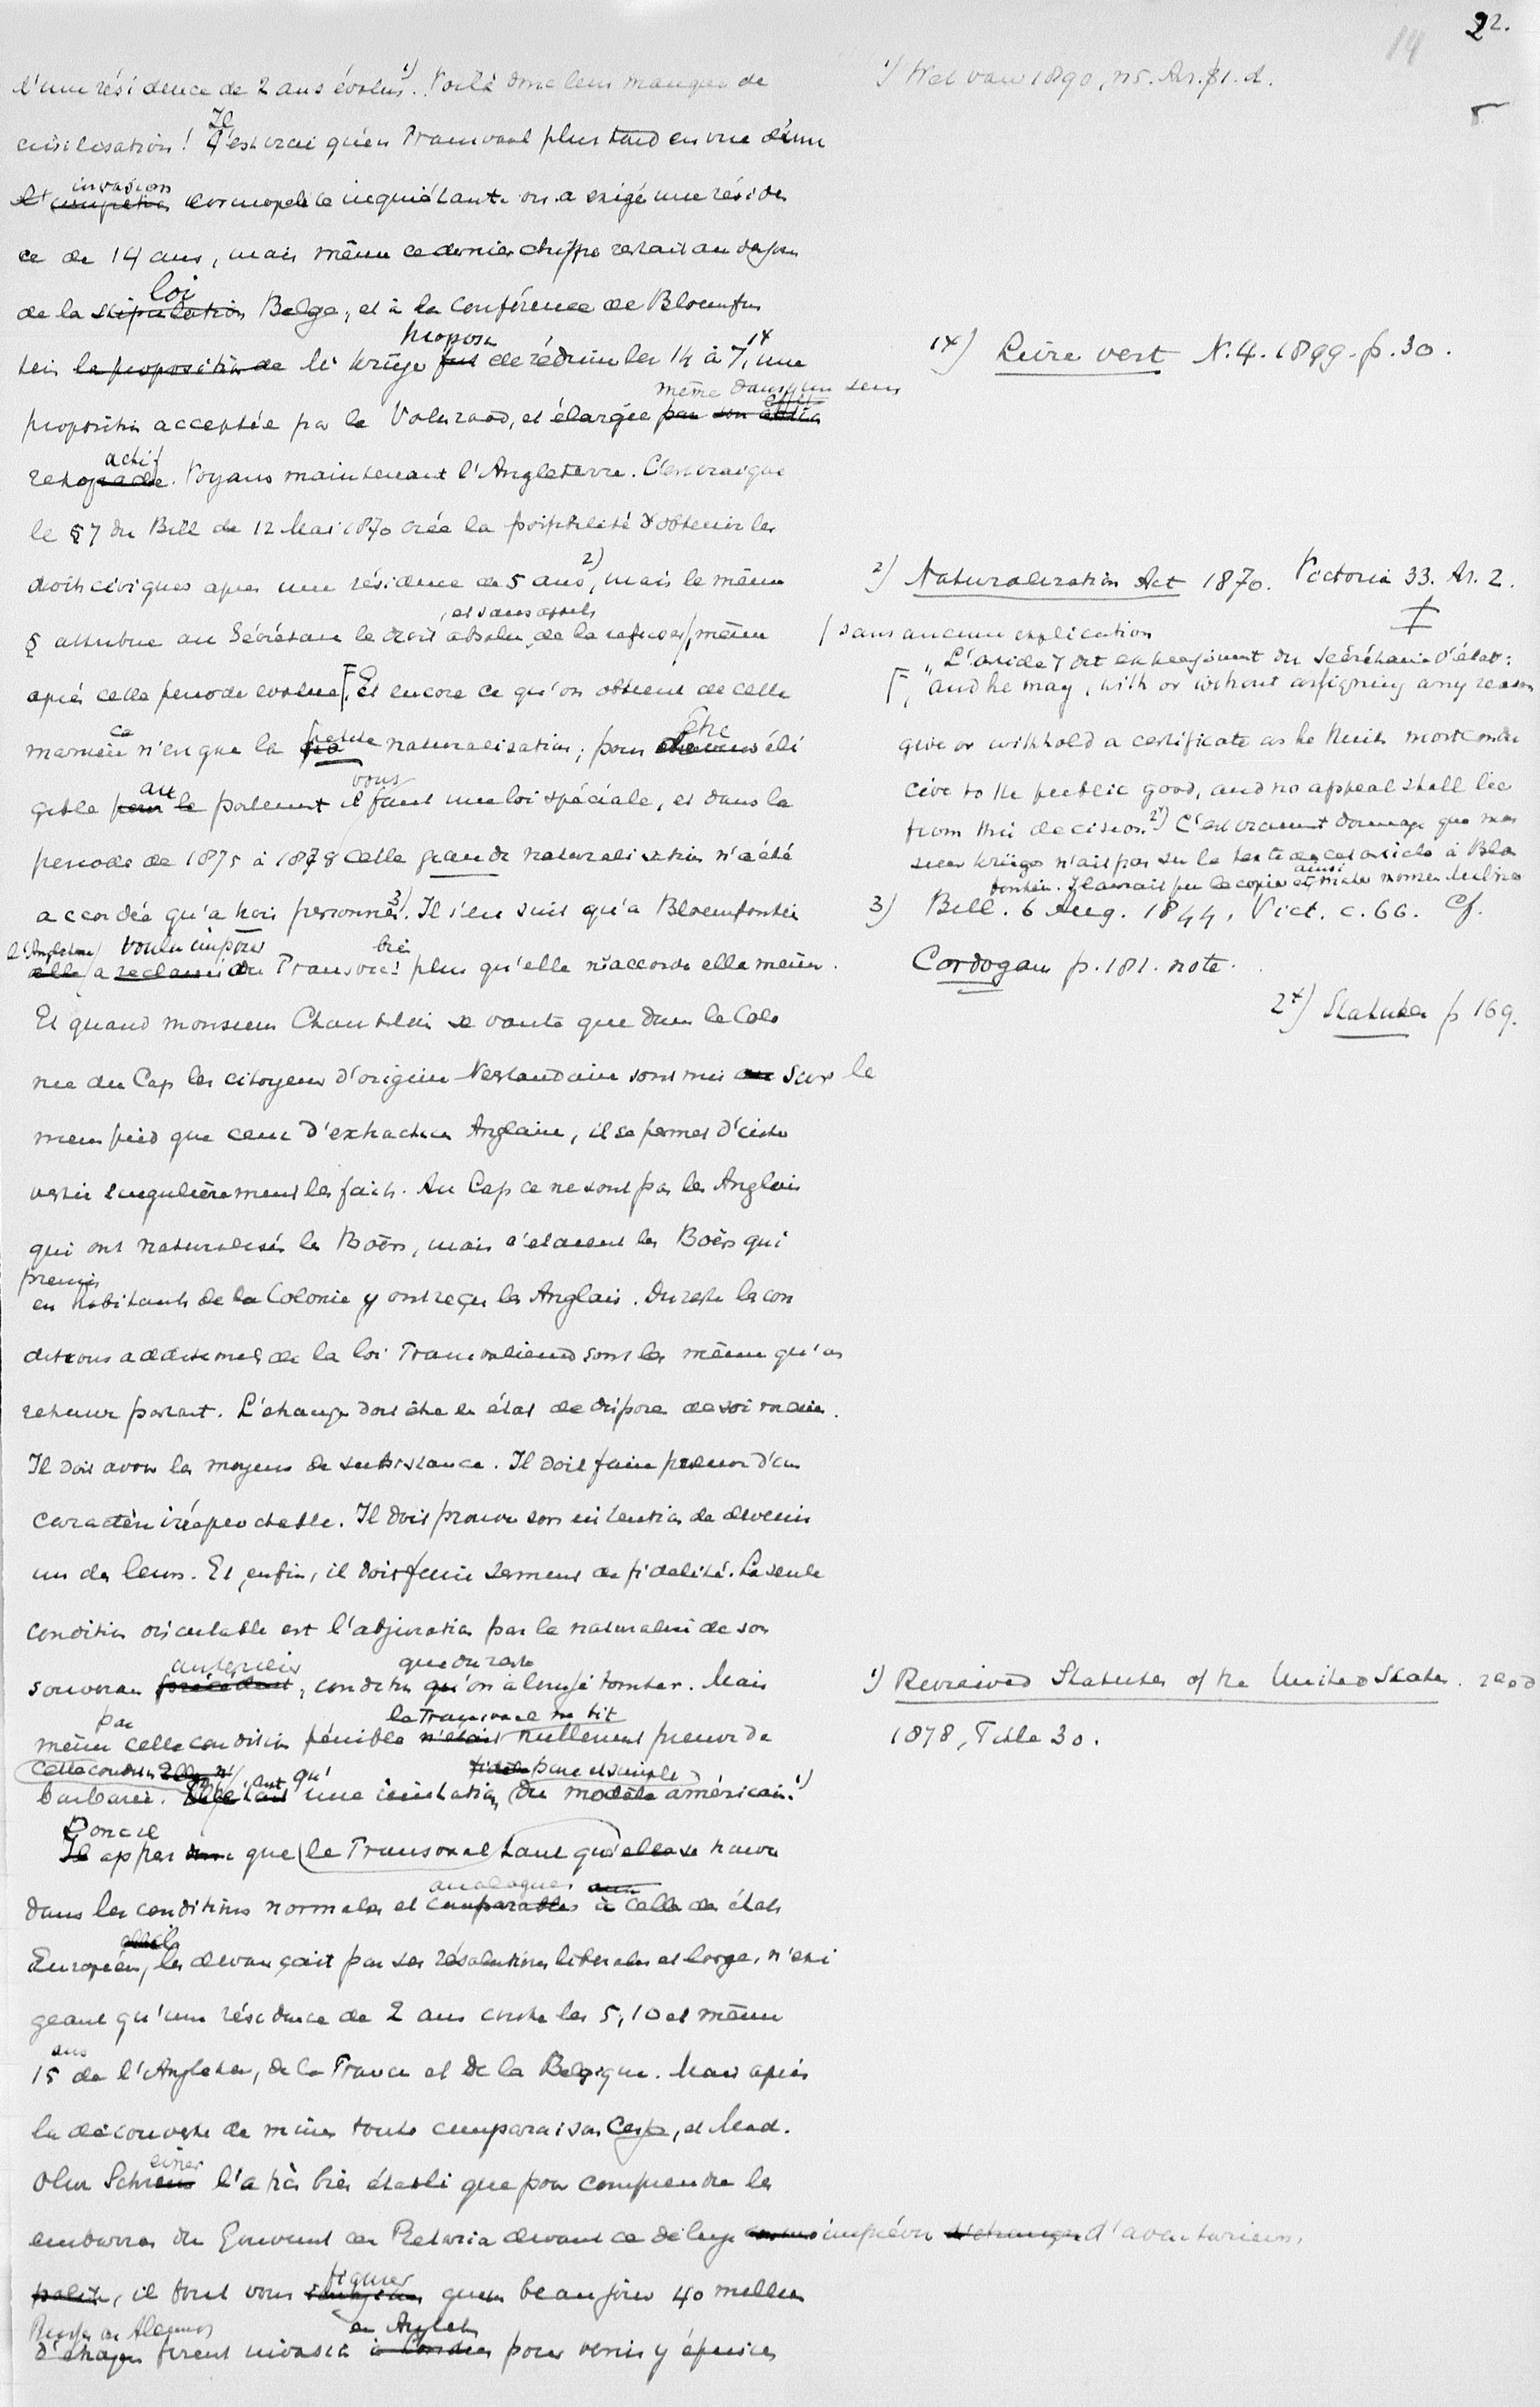 22.
14
d'une résidence de 2 ans évolus.¹) Voilà donc leur manque de
civilisation! Il C'est vrai qu'en Transvaal plus tard en vue d'une
invasion
cosmopolite inquiétante on a exigé une résiden
ce de 14 ans, mais même ce dernier chiffre restait au dessous
loi
de la stipulation Belge, et à la conférence de Bloemfon
proposa
tein la proposition de Mr Krüger fut de réduire les 14 à 7, 1* une
même dans un sens
proposition acceptée par le Volksraad, et élargie par son
actif
retrograde. Voyons maintenant l'Angleterre. C'est vrai que
le § 7 du Bill de 12 Mai 1870 crée la possibilité d'obtenir les
droits civiques apres une résidence de 5 ans 2), mais le même
, et sans appel,
§ attribue au Sécrétaire le droit absolu de la refuser/, même
après cette periode evolue. Et encore ce qu'on obtient de cette
ce petite être
manière n'est que la naturalisation; pour éli
au vous
gible pour le parlement il faut une loi spéciale, et dans la
periode de 1875 à 1878 cette grande naturalisation n'a été
accordée qu'a trois personnes 3). Il s'en suit qu'a Bloemfontein
l'Angleterre voulu imposer bien
elle a reclamé du Transvaal plus qu'elle n'accorde elle même.
Et quand monsieur Chamberlain se vante que dans la Colo
nie du Cap les citoyens d'origine Neerlandaise sont mis au sur le
meme pied que ceux d'extraction Anglaise, il se permet d'inter
vertir singulièrement les faits. Au Cap ce ne sont pas les Anglais
qui ont naturalisés les Boërs, mais c'etaient les Boërs qui
premiers
en habitants de la Colonie y ont reçu les Anglais. Du reste les con
ditions additionnel de la loi Transvalienne sont les même qu'on
retrouve partout. L'étranger doit être en état de disposer de soi même.
Il doit avoir les moyens de subsistance. Il doit faire preuve d'un
caractère irréprochable. Il doit prouver son intention de devenir
un des leurs. Et, enfin, il doit faire serment de fidelité. La seule
condition discutable est l'abjuration par le naturalisé de son
anterieur que du reste
souverain précédent, condition qu'on a laissé tomber. Mais
par le Transvaal ne fit
même cette condition pénible n'était nullement preuve de
cette condition pure et simple
barbarie. qu' une imitation du modèle américain. 1)
Donc il
Il appert donc que le Transvaal tant qu'elle se trouva
analogues aux
dans les conditions normales et comparables à celles des états
Européen, les devançait par ses résolutions liberales et large, n'exi
geant qu'une résidence de 2 ans contre les 5, 10 et même
ans
15 de l'Angleterre, de la France et de la Belgique. Mais après
la découverte de mines toute comparaison cesse, et Mad.
einer
Olive Schreiner l'a très bien établi que pour comprendre les
embarras du Gouvernement de Pretoria devant ce déluge imprévu d'aventuriers,
figurer
il faut vous qu'un beau jour 40 millions
en Angleterre
d'étrangers firent invasion à Londres pour venir y épuiser
¹) Wet van 1890, n5. Ar. 1. d.
1*) Livre vert N. 4. 1899. p. 30.
2) Naturalisation Act 1870. Victoria 33. Ar. 2.
/ sans aucune explication
„L'article 7 dit expressément du Sécrétaire d'état:
and he may, with or without assigning any reason
give or withhold a certificate as he thinks most condu
cive to the public good, and no appeal shall lie
from this decision." 2*) C'est vraiment dommage que mon
sieur Krüger n'ait pas su le texte de cet article à Bloem
fontein. Il aurait pu le copier
3) Bill. 6 Aug. 1844, Vict. c. 66. Cf.
Cordogan p. 181. note.
2*) Statutes p 169.
1) Reviewed Statutes of the United States.
1878, Title 30.